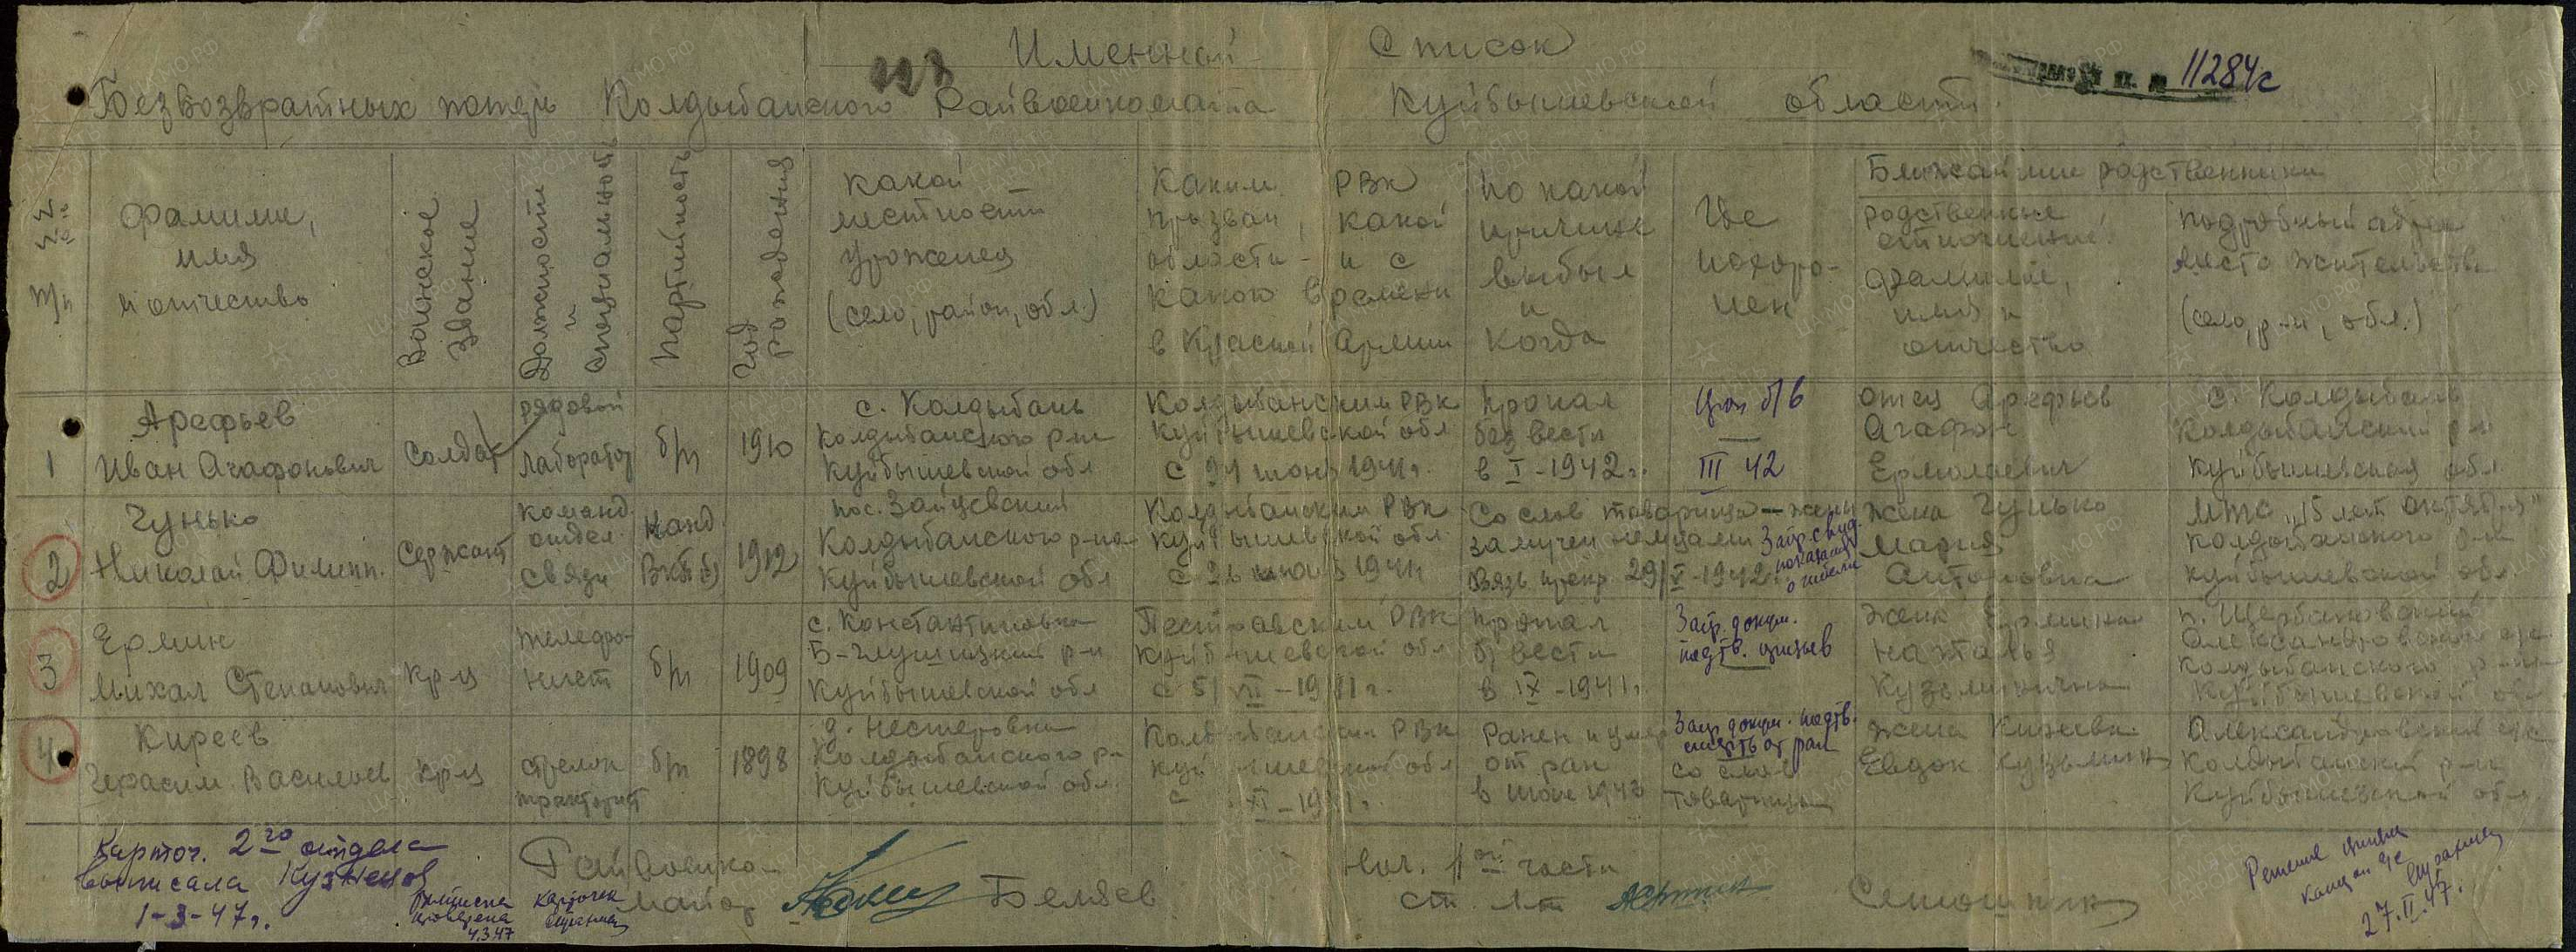 Именной Список
11284с
Безвозвратных потерь Колдыбанского Райвоенкомата Куйбышевской области.
№№ п/п
Фамилия,
имя
и отчество
Воинское звание
Должность и специальность
Партийность
Год рождения
какой
местности
уроженец
(село, район, обл.)
Каким РВК
призван, какой
области и с
какого времени
в Красной Армии
по какой
причине
выбыл
и
когда
Где
похоро-
нен
Ближайшие родственники
родственные
отношения,
фамилия,
имя и
отчество
подробный адрес
место жительства
(село, р-н, обл.)
1
Арефьев
Иван Агафонович
Солдат
рядовой
лаборатор
б/п
1910
с. Колдыбань
Колдыбанского р-н
Куйбышевской обл
Колдыбанским РВК
Куйбышевской обл
1941г.
Пропал
без вести
в I-1942г.
б/в
III 42
отец Арефьев
Агафон
Ермолаевич
с. Колдыбань
Колдыбанский р-н
Куйбышевская обл
2
Чунько
Николай Филипп.
Сержант
команд.
отдел.
связи
Канд.
ВКП(б)
1912
пос. Зайцевский
Колдыбанского р-на
Куйбышевской обл
Колдыбанским РВК
Куйбышевской обл
1941г
Со слов товарища — жены
замучен немцами
Связь прекр. 29/V-1942г.
жена Чунько
Мария
Антоновна
МТС "15 лет Октября"
Колдыбанского р-н
Куйбышевской обл.
3
Ермин
Михаил Степанович
кр-ц
телефо-
нист
б/п
1909
с. Константиновка
Б-Глушицкий р-н
Куйбышевской обл
Пестравским РВК
Куйбышевской обл
Пропал
б/вести
в IX-1941г.
Загр. докум.
подтв.
жена Ермина
Наталья
Кузьминична
п. Щербаковский
Колдыбанского р-на
Куйбышевской обл
4
Киреев
Герасим Васильев
кр-ц
стрелок
тракторист
б/п
1898
д. Нестеровка
Колдыбанского р-н
Куйбышевской обл.
Колдыбанским РВК
Куйбышевской обл
Ранен и умер
от ран
в июне 1942
Загр. докум. подтв.
смерть от ран
со слов
товарища
жена Киреева
Евдок Кузьмин
Колдыбанский р-н
Куйбышевской обл.
Карточ. 2го отдела
выписала Кузнецов
1-3-47г.
Выписка карточек
проверена
4.3.47
Райвоенком
майор Беляев
Нач. 1ой части
ст. л-т
27.II.47.